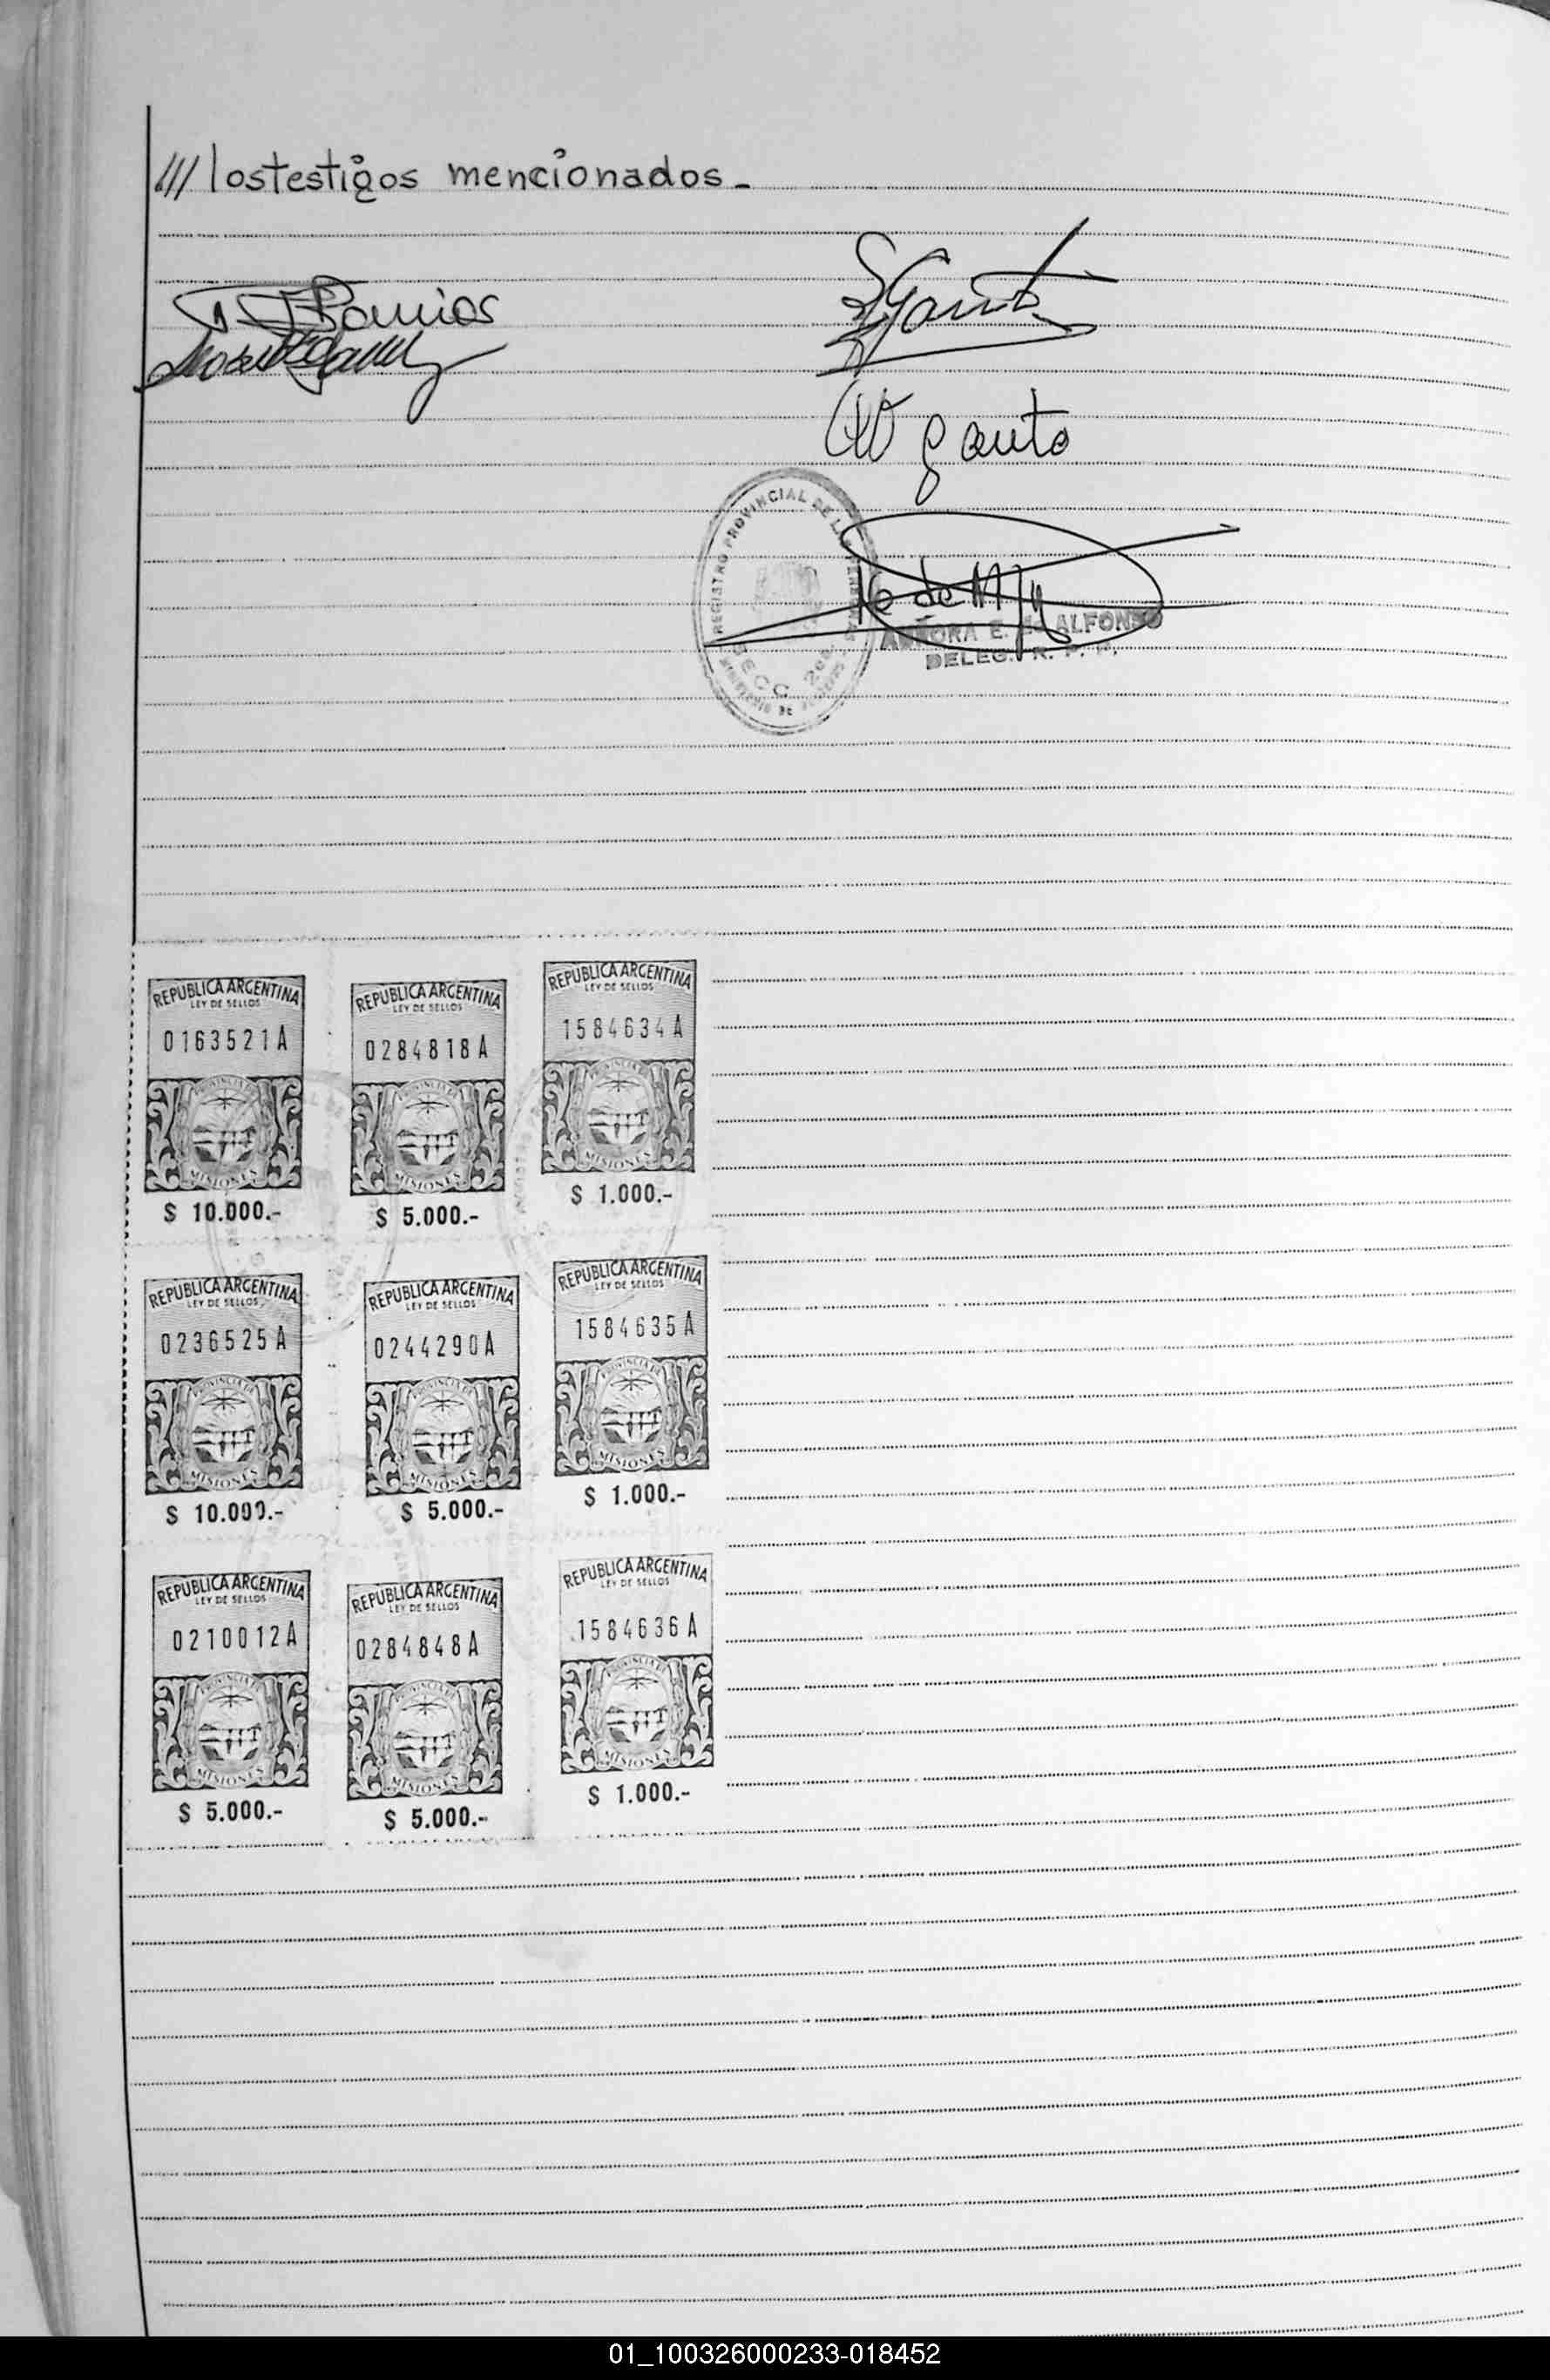 /// los testigos mencionados.-
Gauto
REGISTRO PROVINCIAL DE LAS PERSONAS
SECC. 2da.
MINISTERIO DE
AURORA E. de ALFONSO
DELEG. R. P. P.
REPUBLICA ARGENTINA
LEY DE SELLOS
0163521A
PROVINCIA DE
MISIONES
$ 10.000.-
REPUBLICA ARGENTINA
LEY DE SELLOS
0284818A
PROVINCIA DE
MISIONES
$ 5.000.-
REPUBLICA ARGENTINA
LEY DE SELLOS
1584634A
PROVINCIA DE
MISIONES
$ 1.000.-
REPUBLICA ARGENTINA
LEY DE SELLOS
0236525A
PROVINCIA DE
MISIONES
$ 10.000.-
REPUBLICA ARGENTINA
LEY DE SELLOS
0244290A
PROVINCIA DE
MISIONES
$ 5.000.-
REPUBLICA ARGENTINA
LEY DE SELLOS
1584635A
PROVINCIA DE
MISIONES
$ 1.000.-
REPUBLICA ARGENTINA
LEY DE SELLOS
0210012A
PROVINCIA DE
MISIONES
$ 5.000.-
REPUBLICA ARGENTINA
LEY DE SELLOS
0284848A
PROVINCIA DE
MISIONES
$ 5.000.-
REPUBLICA ARGENTINA
LEY DE SELLOS
1584636A
PROVINCIA DE
MISIONES
$ 1.000.-
01_100326000233-018452